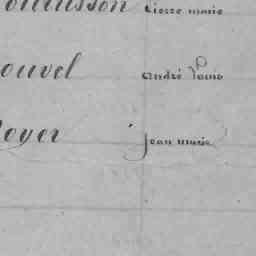 pierre marie
ouvel andré Louis
oyer jean marie